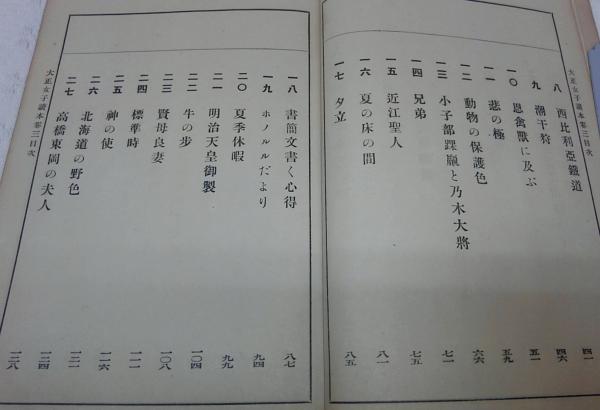 大正女子讀本卷三目次
八 西比利亞鐵道 四一
九 潮干狩 四六
一〇 恩禽獸に及ぶ 五一
一一 悲の極 五九
一二 動物の保護色 六六
一三 小子部蜾蠃と乃木大將 七一
一四 兄弟 七五
一五 近江聖人 八一
一六 夏の床の間
一七 夕立 八五
一八 書簡文書く心得 八七
一九 ホノルルだより 九四
二〇 夏季休暇 九九
二一 明治天皇御製
二二 牛の步 一〇四
二三 賢母良妻 一〇八
二四 標準時 一一一
二五 神の使 一一六
二六 北海道の野色 一二一
二七 高橋東岡の夫人 一二四
一二八
大正女子讀本卷三目次